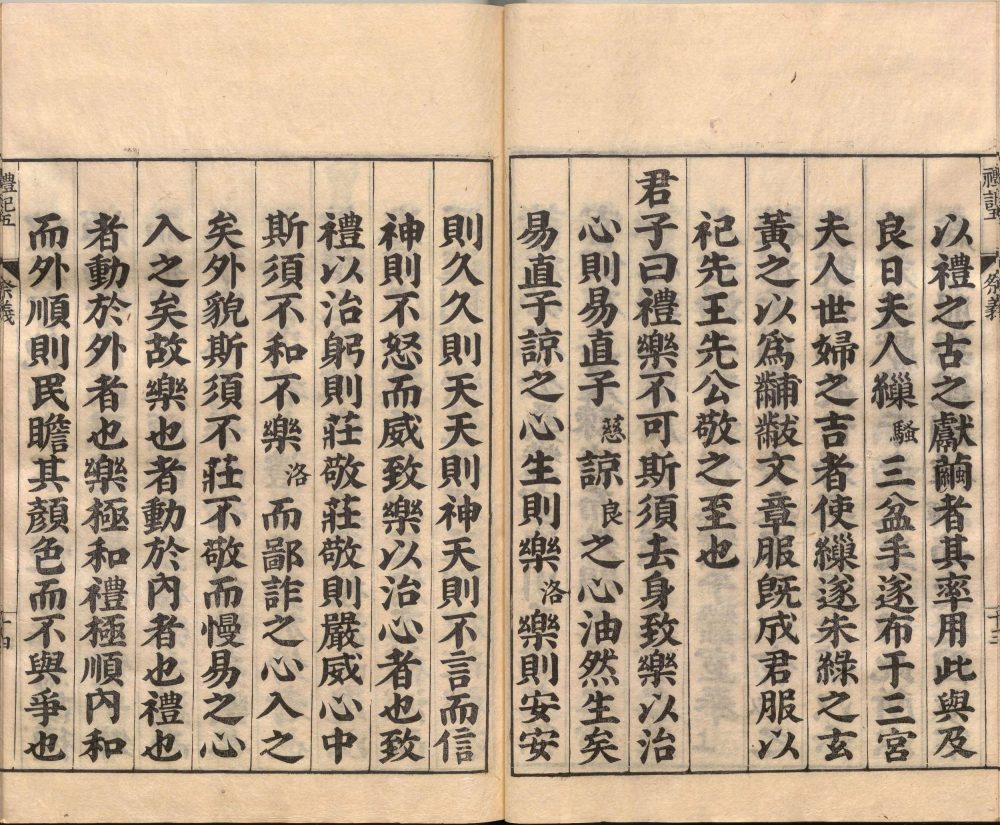 以禮之古之獻繭者其率用此與及
良日夫人繅騷三盆手遂布于三宮
夫人世婦之吉者使繅遂朱綠之玄
黃之以爲黼黻文章服旣成君服以
祀先王先公敬之至也
君子曰禮樂不可斯須去身致樂以治
心則易直子慈諒良之心油然生矣
易直子諒之心生則樂洛樂則安安
則久久則天天則神天則不言而信
神則不怒而威致樂以治心者也致
禮以治躬則莊敬莊敬則嚴威心中
斯須不和不樂洛而鄙詐之心入之
矣外貌斯須不莊不敬而慢易之心
入之矣故樂也者動於內者也禮也
者動於外者也樂極和禮極順內和
而外順則民瞻其顏色而不與爭也
禮記五
祭義
十三
禮記五
祭義
十四